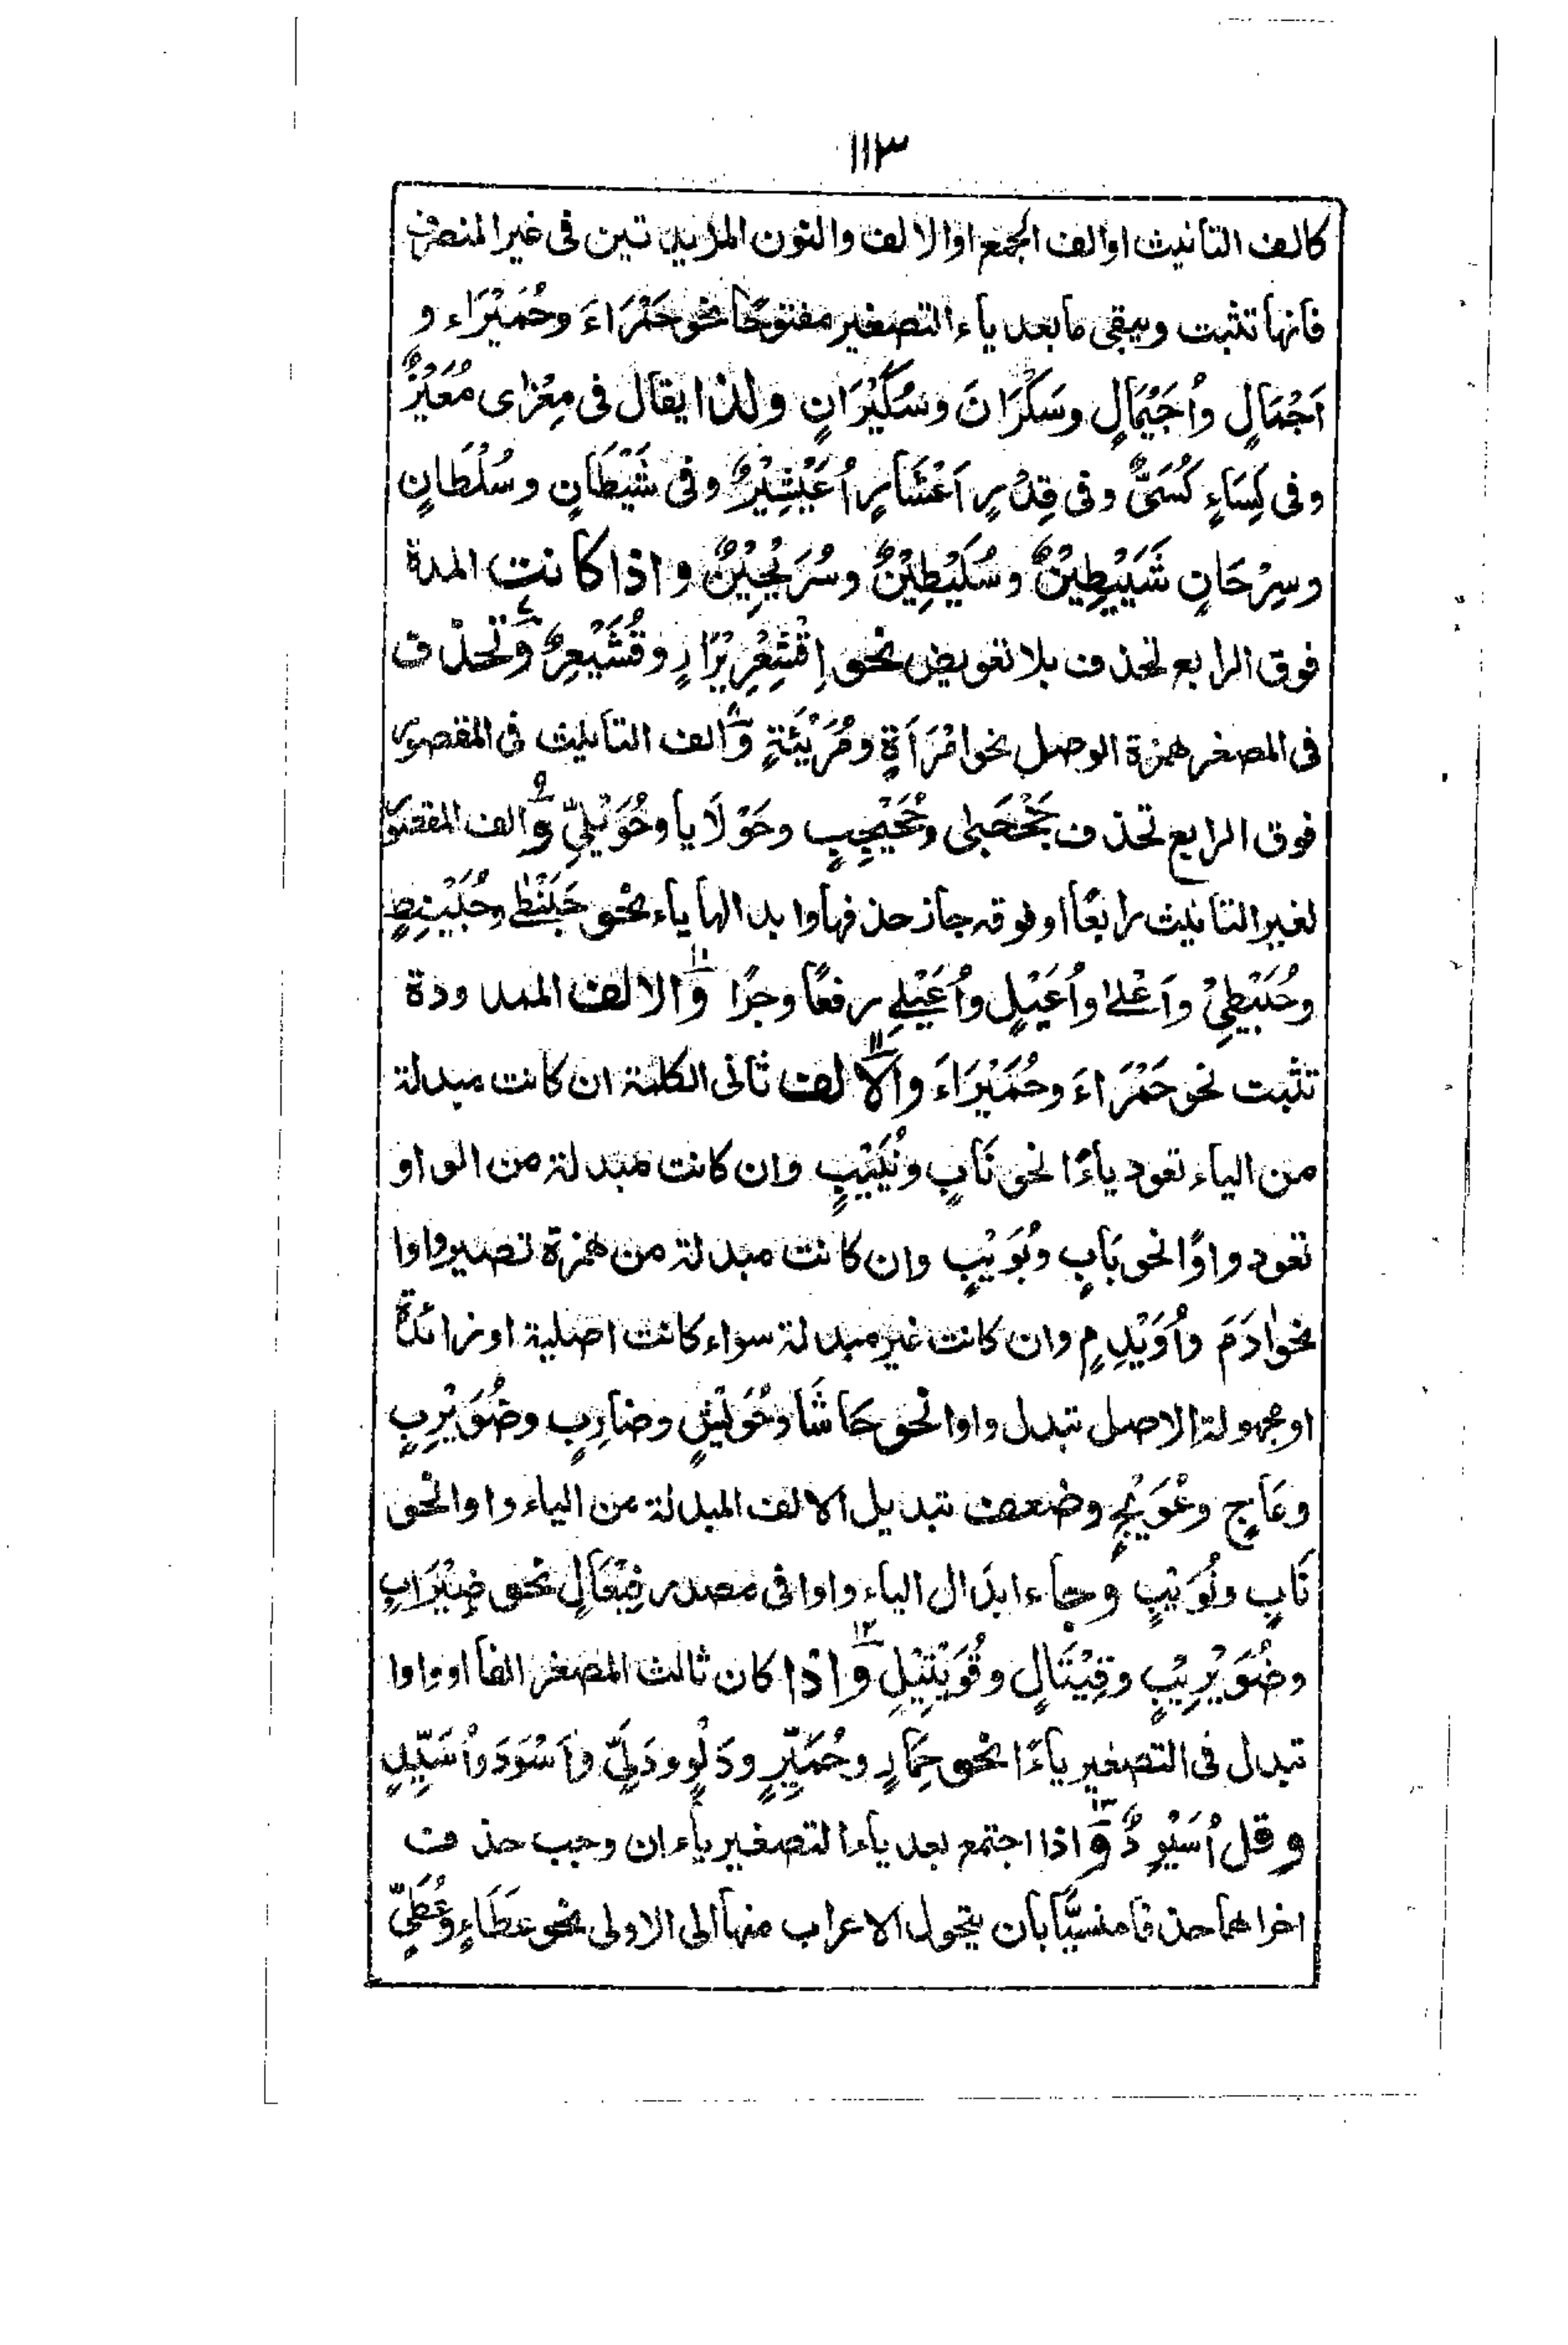 ١١٣
كالف التأنيث اوالف الجمع اوالالف والنون المزيدتين فى غيرالمنصرف
فانها تثبت ويبقى مابعد ياء التصغير مفتوحًا نحو حَمْرَاءَ وحُمَيْرَاء و
اَجْمَالٍ واُجَيْمَالٍ وسَكْرَانَ وسُكَيْرَانٍ ولذا يقال فى مِعْزاى مُعَيْزٌ
وفى كِسَاءٍ كُسَىٌّ وفى قِدْرٍ اَعْشَارٍ اُعَيْشِيْرٌ وفى شَيْطَانٍ وسُلْطَانٍ
وسِرْحَانٍ شُيَيْطِيْنٌ وسُلَيْطِيْنٌ وسُرَيْحِيْنٌ واذا كانت المدة
فوق الرابع تحذف بلا تعويض نحو اِقْشِعْرِيْرَارٍ وقُشَيْعِرٌ ٧ وتحذف
فى المصغر همزة الوصل نحوامْرَأَةٍ ومُرَيْئَةٍ ٨ والف التأنيث فى المقصور
فوق الرابع تحذف جَحْجَبىٰ وجُحَيْجِبٍ وحَوْلَايا وحُوَيْلِىٍّ ٩ والف المقصور
لغير التأنيث رابعًا اوفوقه جاز حذفها وابدالها ياء نحو حَبَنْطٰے وحُبَيْنِطٍ
وحُبَيْطِىْ واَعْلےٰ واُعَيْلٍ واُعَيْلِے رفعًا وجرًا ١٠ والالف الممدودة
تثبت نحو حَمْرَاءَ وحُمَيْرَاءَ ١١ والالف ثانى الكلمة ان كانت مبدلة
من الياء تعود ياءًا نحو نَابٍ ونُيَيْبٍ وان كانت مبدلة من الواو
تعود واوًا نحو بَابٍ وبُوَيْبٍ وان كانت مبدلة من همزة تصيرواوا
نحوادَمَ واُوَيْدِمٍ وان كانت غيرمبدلة سواء كانت اصلية اوزائدةً
اومجهولة الاصل تبدل واوا نحو حَاشَا وحُوَيْشٍ وضارِبٍ وضُوَيْرِبٍ
وعَاجٍ وعُوَيْجٍ وضعف تبديل الالف المبدلة من الياء واوا نحو
نَابٍ ونُوَيْبٍ وجاء ابدَال الياء واوا فى مصدر فِيْعَالٍ نحو ضِيْرَابٍ
وضُوَيْرِيْبٍ وقِيْتَالٍ وقُوَيْتِيْلٍ ١٢ واذا كان ثالث المصغر الفا اوواوا
تبدل فى التصغير ياءًا نحو حِمَارٍ وحُمَيِّرٍ ودَلْوٍ ودُلَىٍّ واَسْوَدَ واُسَيِّدٍ
وقل اُسَيْوِدٌ ١٣ واذا اجتمع بعد ياء التصغير ياءان وجب حذف
اخراهما حذفا منسيًّا بأن يتحول الاعراب منها الى الاولى نحو عَطَاءٍ وعُطَىٍّ